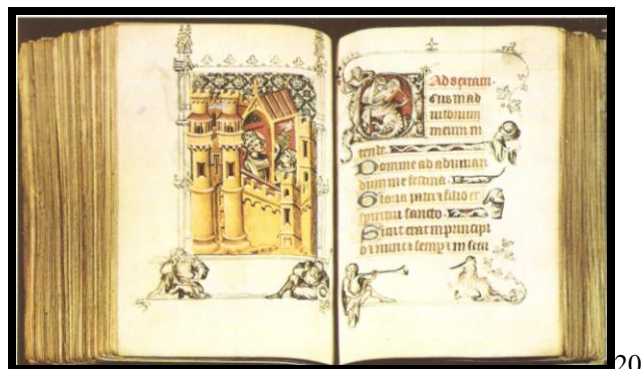 Ad sextam.
eus in ad
iutorium
meum in
tende.
Domine ad adiuuan
dum me festina.
Gloria patri et filio et
spiritui sancto.
Sicut erat in principi
o et nunc et semper et in secu
20